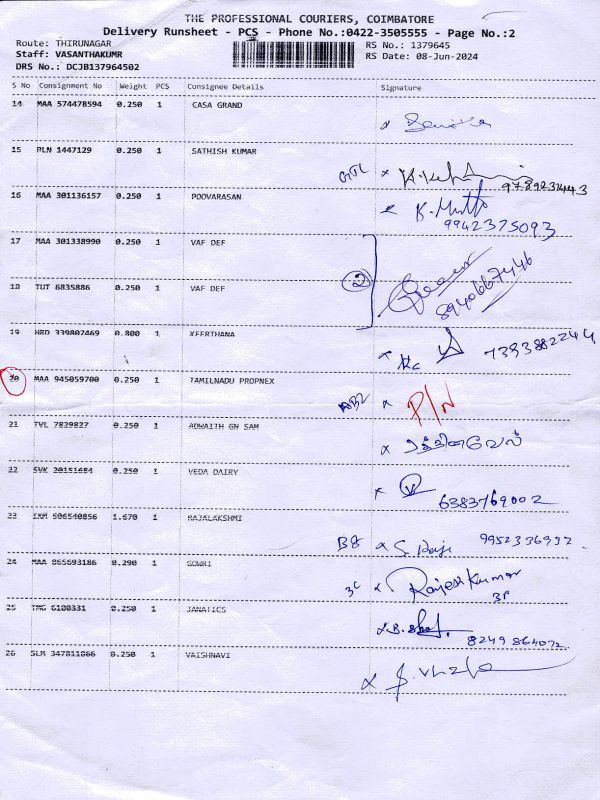 THE PROFESSIONAL COURIERS, COIMBATORE
Delivery Runsheet - PCS - Phone No.:0422-3505555 - Page No.:2
Route: THIRUNAGAR
RS No.: 1379645
Staff: VASANTHAKUMR
RS Date: 08-Jun-2024
DRS No.: DCJB137964502
S No Consignment No Weight PCS Consignee Details Signature
14 MAA 574478594 0.250 1 CASA GRAND
15 PLN 1447129 0.250 1 SATHISH KUMAR
16 MAA 301136157 0.250 1 POOVARASAN K. Muttu
9942375093
17 MAA 301338990 0.250 1 VAF DEF
2 8940667446
18 TUT 6835886 0.250 1 VAF DEF
19 HRD 339807469 0.800 1 KEERTHANA
20 MAA 945059700 0.250 1 TAMILNADU PROPNEX P/N
21 TVL 7829827 0.250 1 ADWAITH GN SAM ரத்தினவேல்
22 SVK 20151684 0.250 1 VEDA DAIRY
6383769002
23 IKM 506540856 1.670 1 RAJALAKSHMI
B8 S. Raji 9952336932
24 MAA 865693186 0.290 1 GOWRI
Rajesh Kumar
25 TMG 6180331 0.250 1 JANATICS
8249864072
26 SLM 347811866 0.250 1 VAISHNAVI